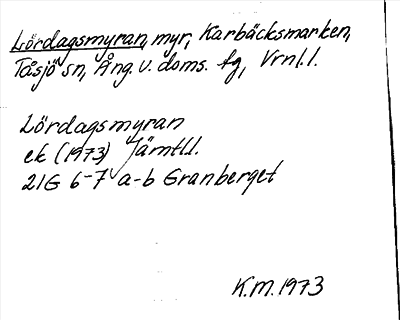 Lördagsmyran, myr, Karbäcksmarken,
Tåsjö sn, Ång. v. doms. fg, Vrnl.l.
Lördagsmyran
ek (1973) Jämtl.l.
21G 6-7 a-b Granberget
K.M. 1973